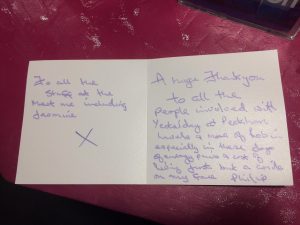 To all the
Staff at the
Meet me including
Jasmine
X
A huge Thankyou
to all the
people involved with
Yesterday at Peckham
a meal
especially in these days
of energy price a cost of
living but a smile
on my face Philip